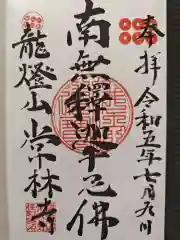 奉拝 令和五年七月九日
南無釋迦牟尼佛
龍燈山 常林寺